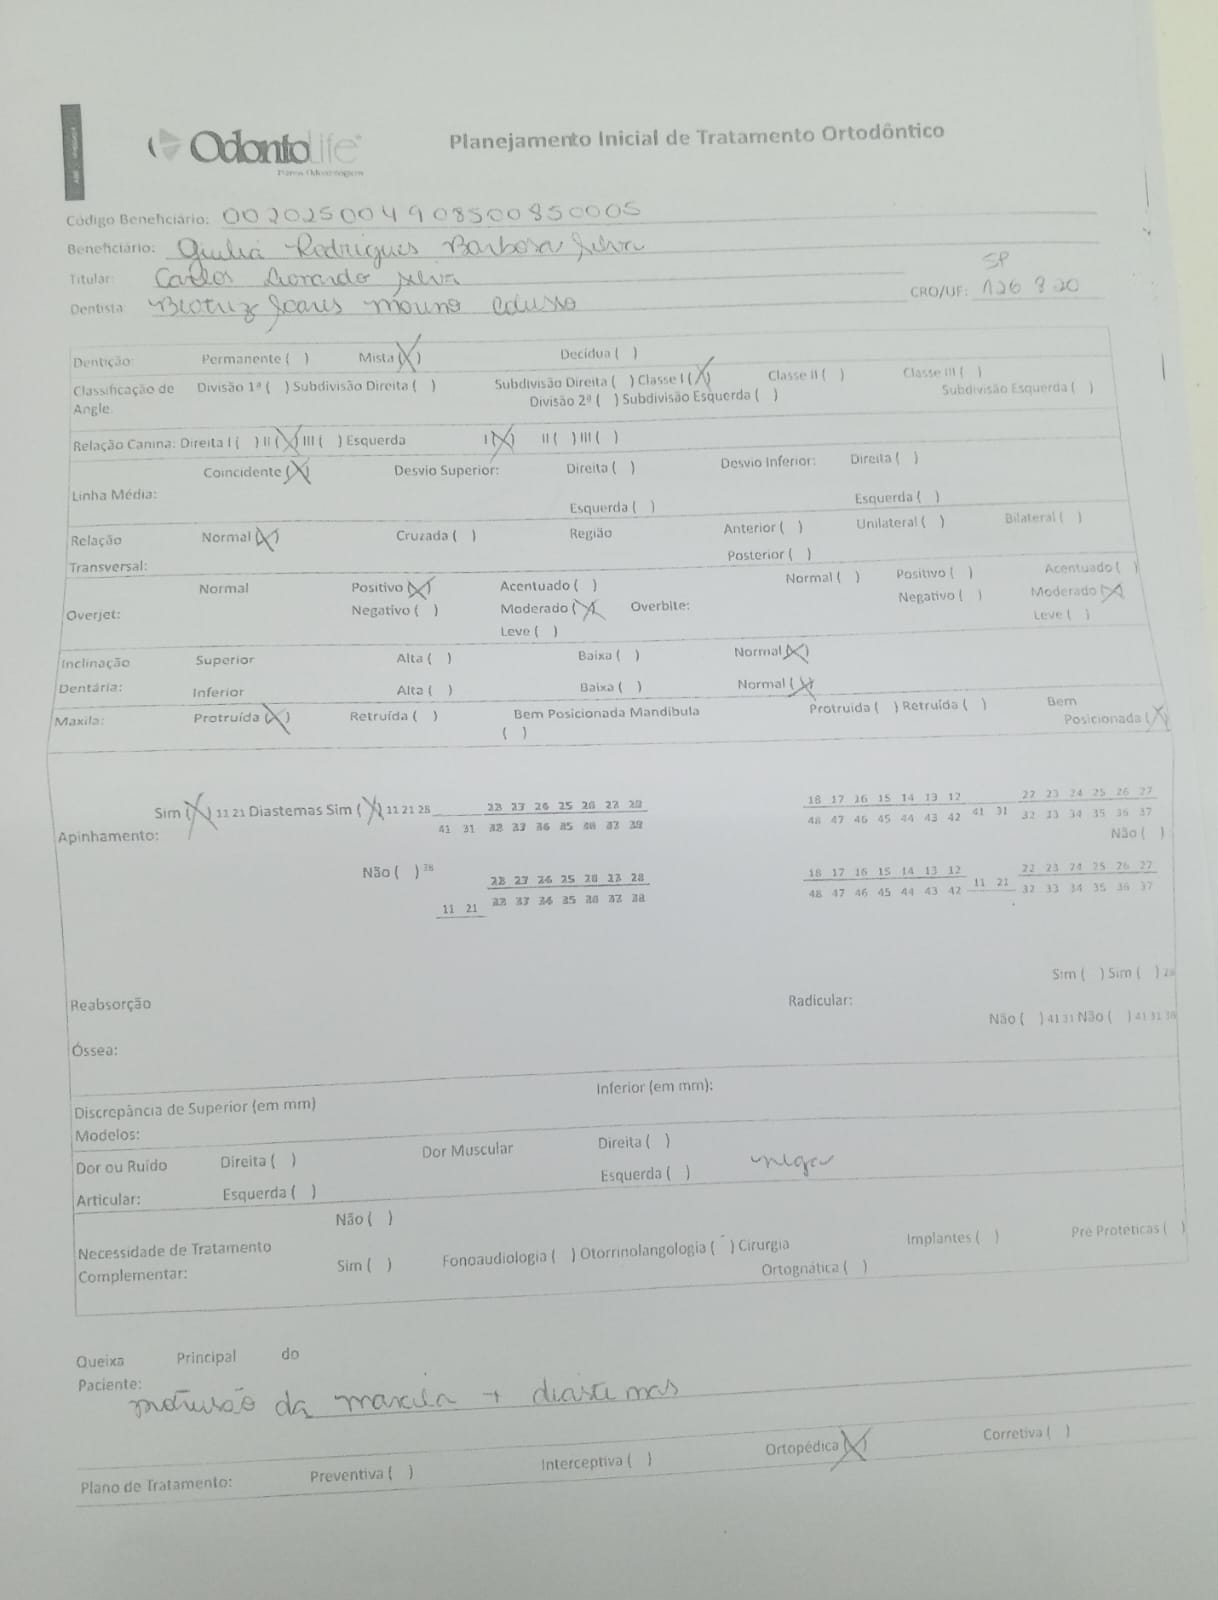 OdontoLife
Planejamento Inicial de Tratamento Ortodôntico
Código Beneficiário: 00202500490850085 0005
Beneficiário: Giulia Rodrigues Barbosa Silva
Titular: Carlos silva
SP
Dentista: Beatriz Soares
CRO/UF: 126 920
Dentição: Permanente ( ) Mista (X) Decídua ( )
Classificação de Divisão 1ª ( ) Subdivisão Direita ( ) Subdivisão Direita ( ) Classe I (X) Classe II ( ) Classe III ( )
Angle. Divisão 2ª ( ) Subdivisão Esquerda ( ) Subdivisão Esquerda ( )
Relação Canina: Direita I ( ) II (X) III ( ) Esquerda I (X) II ( ) III ( )
Coincidente (X) Desvio Superior: Direita ( ) Desvio Inferior: Direita ( )
Linha Média:
Esquerda ( ) Esquerda ( )
Relação Normal (X) Cruzada ( ) Região Anterior ( ) Unilateral ( ) Bilateral ( )
Transversal: Posterior ( )
Normal Positivo (X) Acentuado ( ) Normal ( ) Positivo ( ) Acentuado ( )
Overjet: Negativo ( ) Moderado (X) Overbite: Negativo ( ) Moderado (X)
Leve ( ) Leve ( )
Inclinação Superior Alta ( ) Baixa ( ) Normal (X)
Dentária: Inferior Alta ( ) Baixa ( ) Normal (X)
Maxila: Protruída (X) Retruída ( ) Bem Posicionada Mandíbula Protruída ( ) Retruída ( ) Bem
( ) Posicionada (X)
Sim (X) 11 21 Diastemas Sim (X) 11 21 28 18 17 16 15 14 13 12 22 23 24 25 26 27
Apinhamento: 41 31 48 47 46 45 44 43 42 41 31 32 33 34 35 36 37
Não ( )
Não ( ) 38 18 17 16 15 14 13 12 22 23 24 25 26 27
11 21 48 47 46 45 44 43 42 11 21 32 33 34 35 36 37
Sim ( ) Sim ( ) 28
Reabsorção Radicular:
Não ( ) 41 31 Não ( ) 41 31 38
Óssea:
Discrepância de Superior (em mm) Inferior (em mm):
Modelos:
Dor ou Ruído Direita ( ) Dor Muscular Direita ( )
Articular: Esquerda ( ) Esquerda ( )
Não ( )
Necessidade de Tratamento
Complementar: Sim ( ) Fonoaudiologia ( ) Otorrinolangologia ( ) Cirurgia Implantes ( ) Pre Protéticas ( )
Ortognática ( )
Queixa Principal do
Paciente:
da maxila + diastemas
Plano de Tratamento: Preventiva ( ) Interceptiva ( ) Ortopédica (X) Corretiva ( )